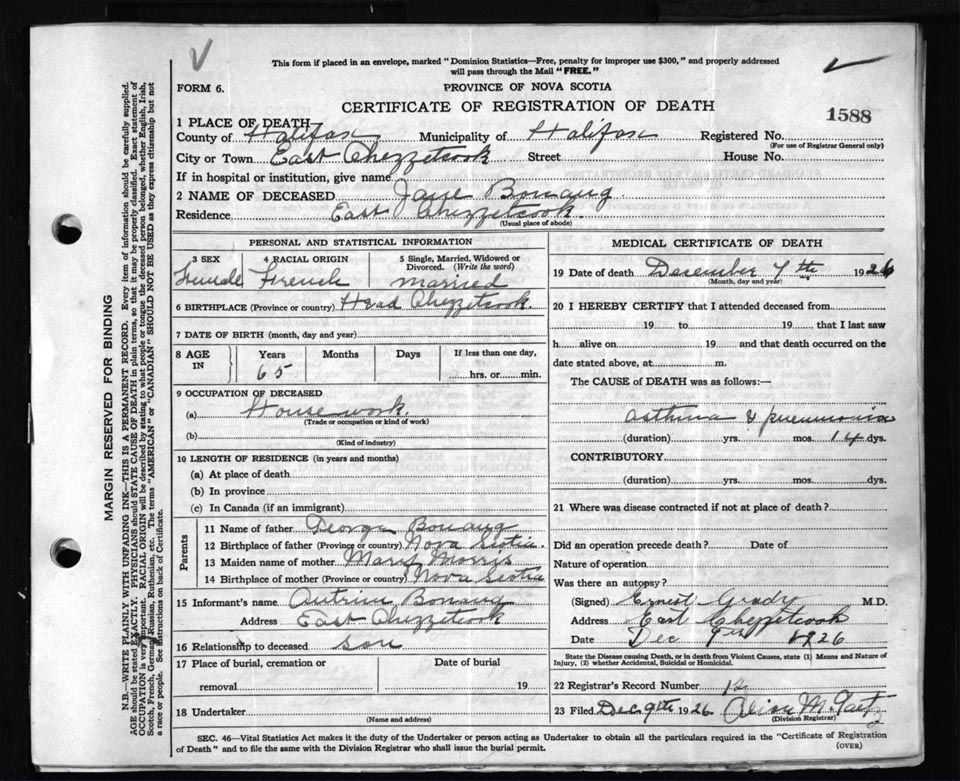 This form if placed in an envelope, marked "Dominion Statistics—Free, penalty for improper use $300," and properly addressed
will pass through the Mail "FREE."
FORM 6.
PROVINCE OF NOVA SCOTIA
CERTIFICATE OF REGISTRATION OF DEATH
1588
1 PLACE OF DEATH
County of Halifax Municipality of Halifax Registered No.
(For use of Registrar General only)
City or Town East Chezzetcook Street House No.
If in hospital or institution, give name
2 NAME OF DECEASED Jane Bonang
Residence East Chezzetcook.
(Usual place of abode)
PERSONAL AND STATISTICAL INFORMATION
3 SEX 4 RACIAL ORIGIN 5 Single, Married, Widowed or
Divorced. (Write the word)
Female French married
6 BIRTHPLACE (Province or country) Head Chezzetcook.
7 DATE OF BIRTH (month, day and year)
8 AGE IN Years Months Days If less than one day,
65 hrs. or min.
9 OCCUPATION OF DECEASED
(a) House work.
(Trade or occupation or kind of work)
(b)
(Kind of industry)
10 LENGTH OF RESIDENCE (in years and months)
(a) At place of death
(b) In province
(c) In Canada (if an immigrant)
Parents
11 Name of father George Bonang
12 Birthplace of father (Province or country) Nova Scotia.
13 Maiden name of mother Mary Morris
14 Birthplace of mother (Province or country) Nova Scotia
15 Informant's name Bonang
Address East Chezzetcook
16 Relationship to deceased son
17 Place of burial, cremation or Date of burial
removal 19
18 Undertaker
(Name and address)
MEDICAL CERTIFICATE OF DEATH
19 Date of death December 7th 1926
(Month, day and year)
20 I HEREBY CERTIFY that I attended deceased from
19 to 19 that I last saw
h alive on 19 and that death occurred on the
date stated above, at m.
The CAUSE of DEATH was as follows:—
asthma & pneumonia
(duration) yrs. mos. 14 dys.
CONTRIBUTORY
(duration) yrs. mos. dys.
21 Where was disease contracted if not at place of death?
Did an operation precede death? Date of
Nature of operation
Was there an autopsy?
(Signed) Ernest Grady M.D.
Address East Chezzetcook
Date Dec 9th 1926
State the Disease causing Death, or in death from Violent Causes, state (1) Means and Nature of
Injury, (2) whether Accidental, Suicidal or Homicidal.
22 Registrar's Record Number 12
23 Filed Dec 9th 1926 M. Gaetz
(Division Registrar)
SEC. 46—Vital Statistics Act makes it the duty of the Undertaker or person acting as Undertaker to obtain all the particulars required in the "Certificate of Registration
of Death" and to file the same with the Division Registrar who shall issue the burial permit.
(OVER)
MARGIN RESERVED FOR BINDING
N.B.—WRITE PLAINLY WITH UNFADING INK—THIS IS A PERMANENT RECORD. Every item of information should be carefully supplied.
AGE should be stated EXACTLY. PHYSICIANS should STATE CAUSE OF DEATH in plain terms, so that it may be properly classified. Exact statement of
OCCUPATION is very important. RACIAL ORIGIN will be described by stating to what people or tongue the deceased person belonged, whether English, Irish,
Scotch, French, German, Russian, Ruthenian, etc. The terms "AMERICAN" or "CANADIAN" SHOULD NOT BE USED as they express citizenship but not
a race or people. See instructions on back of Certificate.